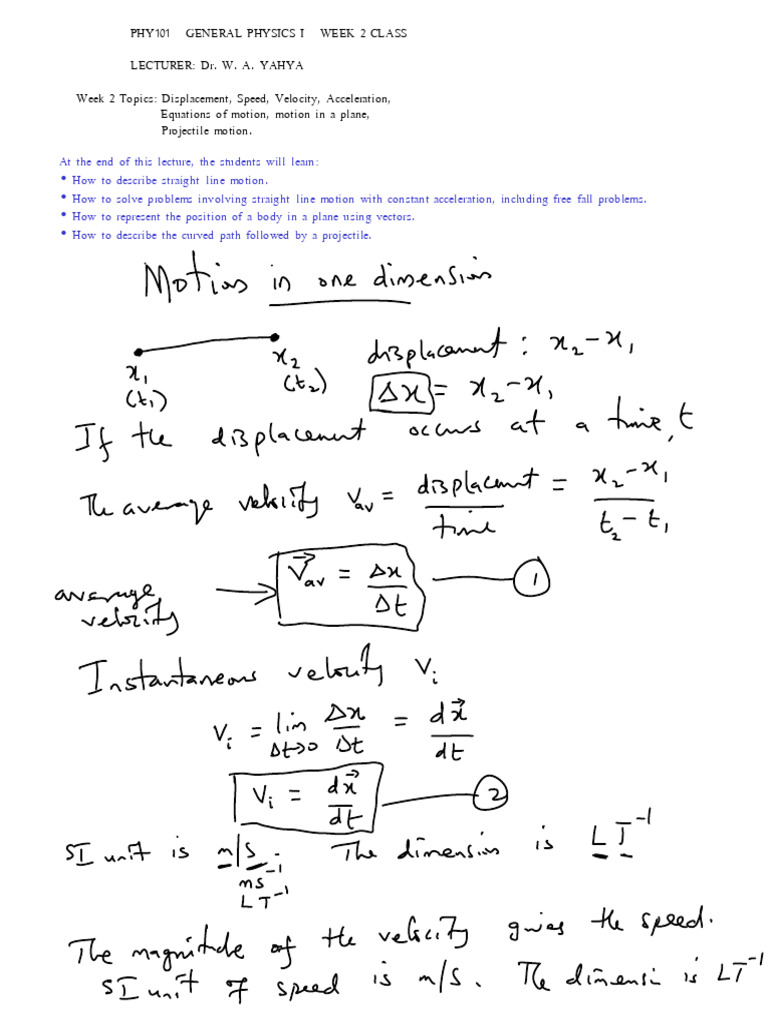 PHY101 GENERAL PHYSICS I WEEK 2 CLASS
LECTURER: Dr. W. A. YAHYA
Week 2 Topics: Displacement, Speed, Velocity, Acceleration,
Equations of motion, motion in a plane,
Projectile motion.
At the end of this lecture, the students will learn:
• How to describe straight line motion.
• How to solve problems involving straight line motion with constant acceleration, including free fall problems.
• How to represent the position of a body in a plane using vectors.
• How to describe the curved path followed by a projectile.
Motion in one dimension
x₁ (t₁) x₂ (t₂)
displacement : x₂ - x₁
Δx = x₂ - x₁
If the displacement occurs at a time, t
The average velocity V_av = displacement / time = (x₂ - x₁) / (t₂ - t₁)
average velocity → V⃗_av = Δx / Δt — ①
Instantaneous velocity Vᵢ
Vᵢ = lim Δt→0 Δx / Δt = dx⃗ / dt
Vᵢ = dx⃗ / dt — ②
SI unit is m/s. The dimension is LT⁻¹
ms⁻¹
LT⁻¹
The magnitude of the velocity gives the speed.
SI unit of speed is m/s. The dimensi is LT⁻¹